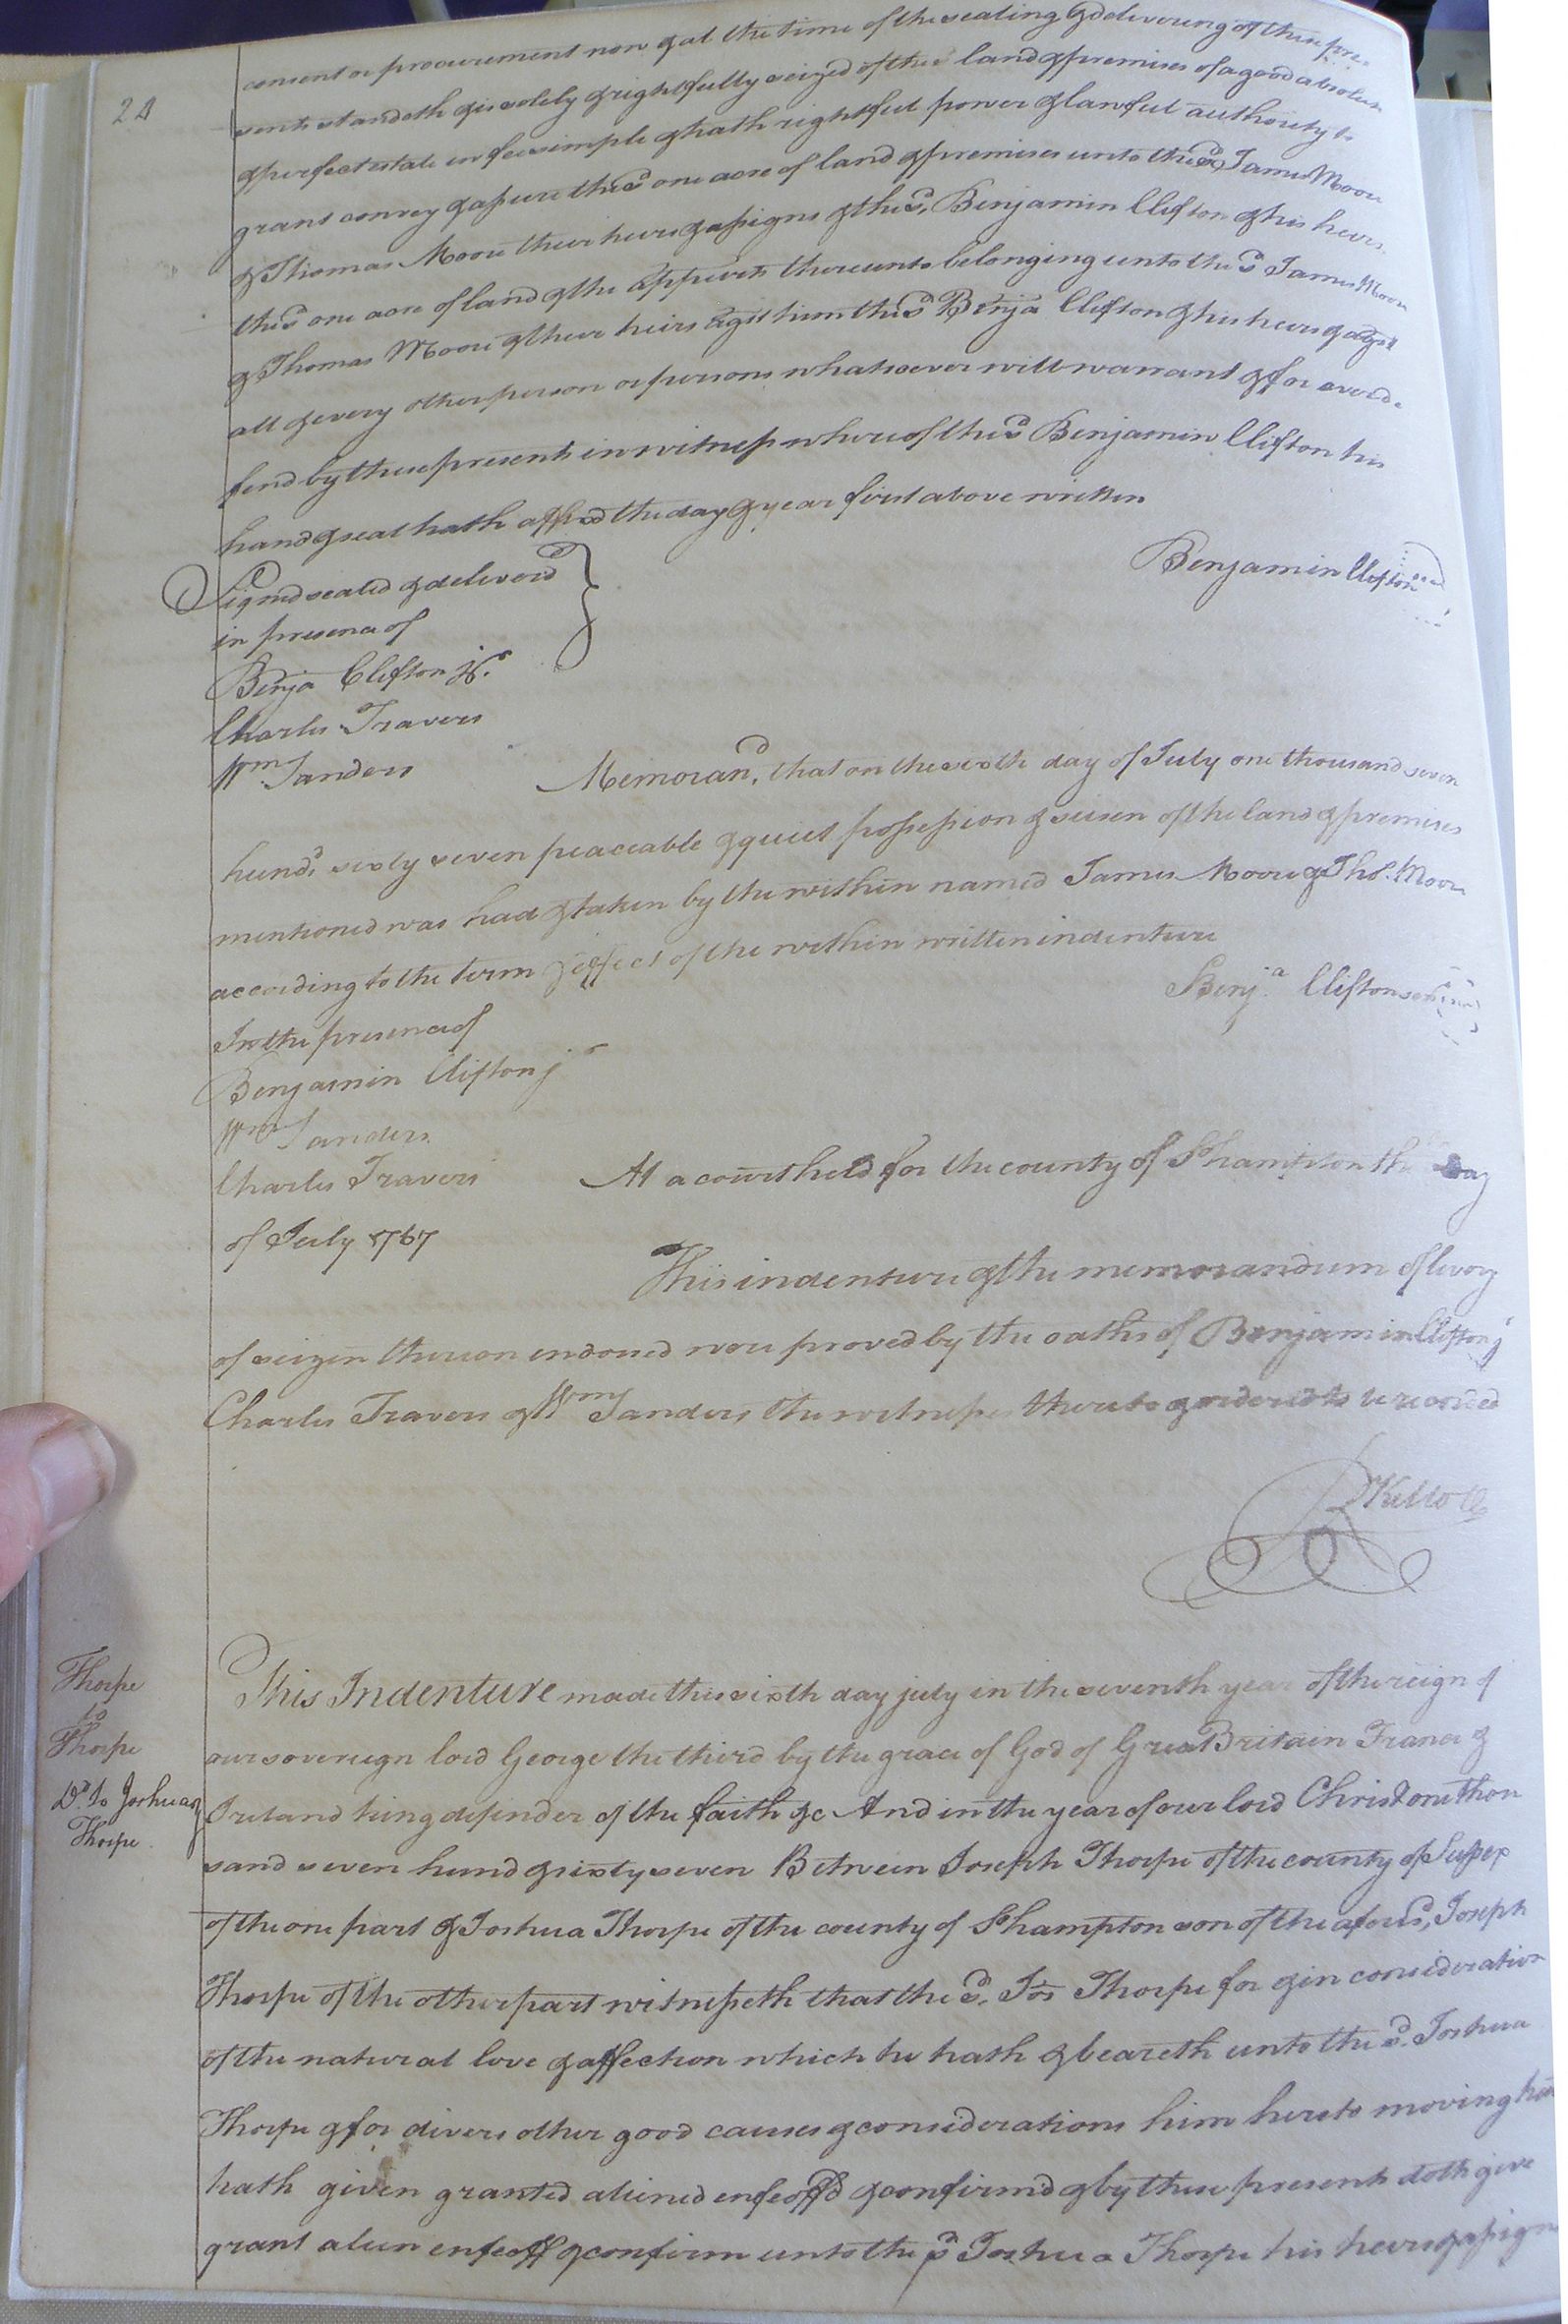 24
consent or procurement now & at the time of the sealing & delivering of these pre
sents standeth & is solely & rightfully seized of the sd land & premises of a good absolute
& perfect estate in fee simple & hath rightful power & lawful authority to
grant convey & assure the sd one acre of land & premises unto the sd James Moore
& Thomas Moore their heirs & assigns & the sd, Benjamin Clifton & his heirs
the sd one acre of land & the appurts thereunto belonging unto the sd James Moore
& Thomas Moore & their heirs agst him the sd Benja Clifton & his heirs & agst
all & every other person or persons whatsoever will warrant & for ever de
fend by these presents in witness whereof the sd Benjamin Clifton his
hand & seal hath affixd the day & year first above written
Benjamin Clifton
Signed sealed & deliverd
in presence of
Benja Clifton jr.
Charles Travers
Wm Sanders
Memorand, that on the sixth day of July one thousand seven
hundd, sixty seven peaceable & quiet possession & seisen of the land & premises
mentioned was had & taken by the within named James Moore & Thos. Moore
according to the term & effect of the within written indenture
Benja. Clifton senr
In the presence of
Benjamin Clifton jr
Wm Sanders
Charles Travers
At a court held for the county of So hampton the day
of July 1767
This indenture & the memorandum of livery
of seizen thereon endorsed were proved by the oaths of Benjamin Clifton jr
Charles Travers & Wm Sanders the witnesses thereto & orderd to be recorded
R Kello
Thorpe
to
Thorpe
Dd. to Joshua
Thorpe
This Indenture made this sixth day july in the seventh year of the reign of
our sovereign lord George the third by the grace of God of Great Britain France &
Ireland king defender of the faith &c And in the year of our lord Christ one thou
sand seven hund & sixty seven Between Joseph Thorpe of the county of Sussex
of the one part & Joshua Thorpe of the county of So hampton son of the aforesd, Joseph
Thorpe of the other part witnesseth that the sd. Jos Thorpe for & in consideration
of the natural love & affection which he hath & beareth unto the sd. Joshua
Thorpe & for divers other good causes & considerations him hereto moving
hath given granted aliened enfeoffd & confirmd & by these presents doth give
grant alien enfeoff & confirm unto the sd Joshua Thorpe his heirs & assigns